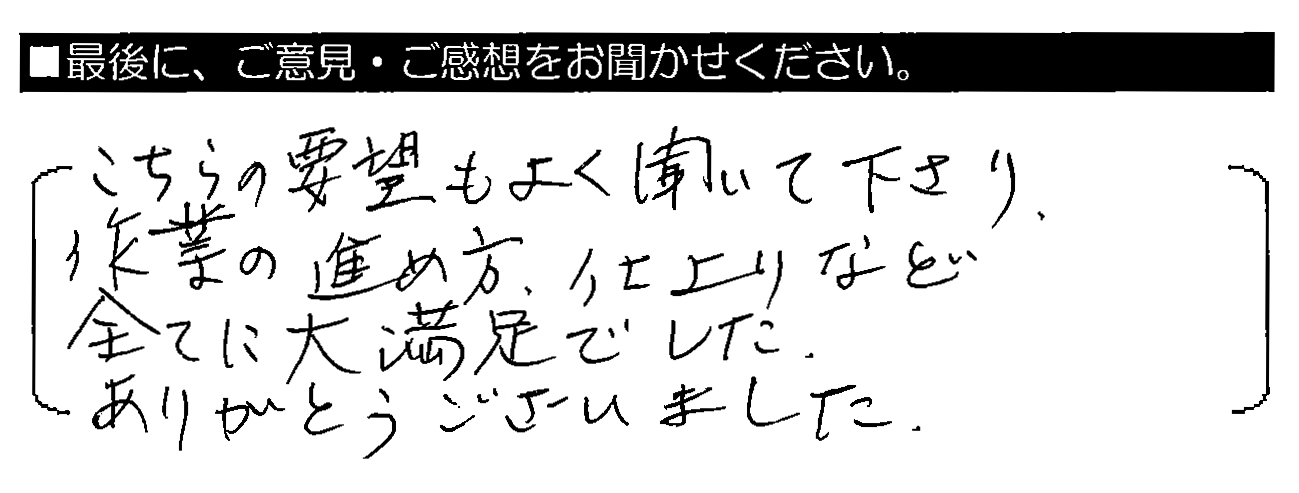 ■最後に、ご意見・ご感想をお聞かせください。
こちらの要望もよく聞いて下さり、
作業の進め方、仕上りなど
全てに大満足でした.
ありがとうございました.